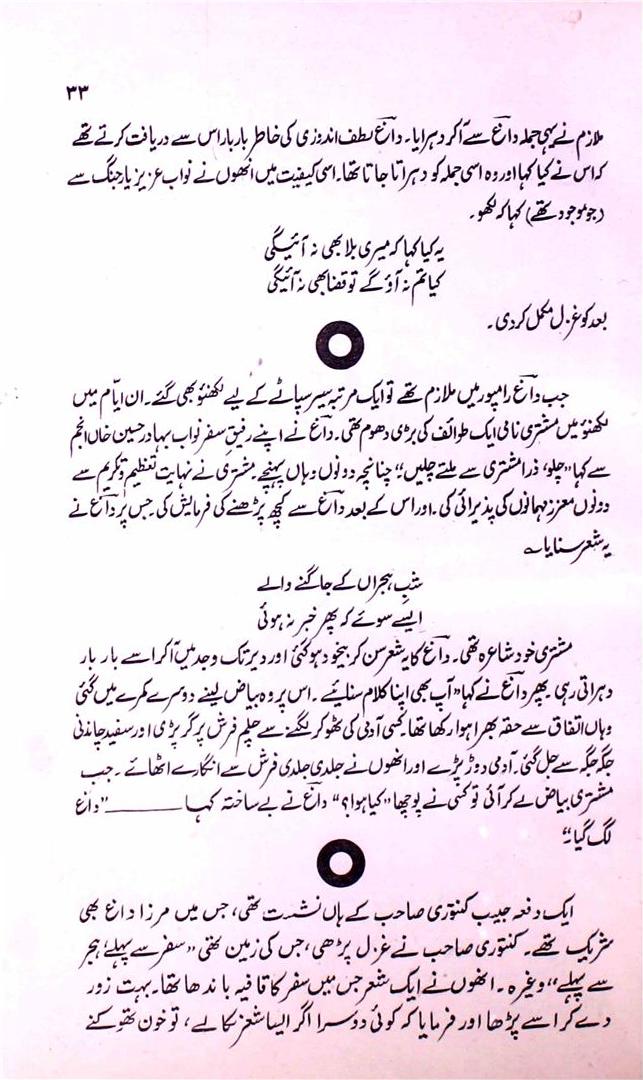 ۳۳
ملازم نے یہی جملہ داغؔ سے آکر دہرایا۔ داغؔ لطف اندوزی کی خاطر بار بار اس سے دریافت کرتے تھے
کہ اس نے کیا کہا اور وہ اسی جملہ کو دہراتا جاتا تھا۔ اسی کیفیت میں انھوں نے نواب عزیز یار جنگ سے
(جو موجود تھے) کہا کہ لکھو۔
یہ کیا کہا کہ میری بلا بھی نہ آئیگی
کیا تم نہ آؤ گے تو قضا بھی نہ آئیگی
بعد کو غزل مکمل کردی۔
جب داغؔ رامپور میں ملازم تھے تو ایک مرتبہ سیر سپاٹے کے لیے لکھنؤ بھی گئے۔ ان ایّام میں
لکھنؤ میں مشتری نامی ایک طوائف کی بڑی دھوم تھی۔ داغؔ نے اپنے رفیقِ سفر نواب بہادر حسین خاں انجم
سے کہا ”چلو، ذرا مشتری سے ملتے چلیں“؛ چنانچہ دونوں وہاں پہنچے۔ مشتری نے نہایت تعظیم و تکریم سے
دونوں معزز مہمانوں کی پذیرائی کی۔ اور اس کے بعد داغؔ سے کچھ پڑھنے کی فرمایش کی۔ جس پر داغؔ نے
یہ شعر سنایا ؎
شبِ ہجراں کے جاگنے والے
ایسے سوئے کہ پھر خبر نہ ہوئی
مشتری خود شاعرہ تھی۔ داغؔ کا یہ شعر سن کر بیخود ہوگئی اور دیر تک وجد میں آکر اسے بار بار
دہراتی رہی۔ پھر داغؔ نے کہا ”آپ بھی اپنا کلام سنائیے۔ اس پر وہ بیاض لینے دوسرے کمرے میں گئی
وہاں اتفاق سے حقہ بھرا ہوا رکھا تھا۔ کسی آدمی کی ٹھوکر لگنے سے چلم فرش پر گر پڑی اور سفید چاندنی
جگہ جگہ سے جل گئی۔ آدمی دوڑ پڑے اور انھوں نے جلدی جلدی فرش سے انگارے اٹھائے۔ جب
مشتری بیاض لے کر آئی تو کسی نے پوچھا ”کیا ہوا؟“ داغؔ نے بے ساختہ کہا ــــــــ ”داغ
لگ گیا“۔
ایک دفعہ حبیب کنتوری صاحب کے ہاں نشست تھی، جس میں مرزا داغؔ بھی
شریک تھے۔ کنتوری صاحب نے غزل پڑھی، جس کی زمین تھی ”سفر سے پہلے، ہجر
سے پہلے“ وغیرہ۔ انھوں نے ایک شعر جس میں سفر کا قافیہ باندھا تھا۔ بہت زور
دے کر اسے پڑھا اور فرمایا کہ کوئی دوسرا اگر ایسا شعر نکالے، تو خون تھوکنے